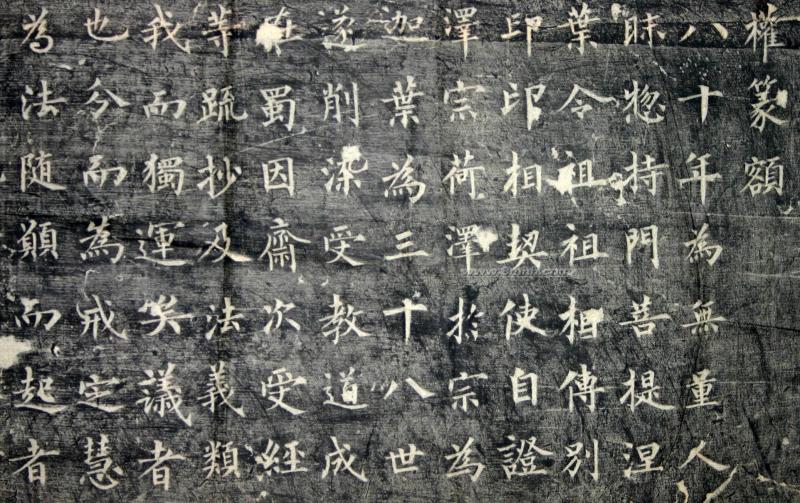 權篆額
八十年為無量人
昧惣持門菩提涅
葉令祖祖相傳別
印印相契使自證
澤宗荷澤於宗為
迦葉為三十八世
遂削染受教道成
在蜀因齋次受經
等疏抄及法義類
我而獨運矣議者
也今而為戒定慧
為法随願而起者